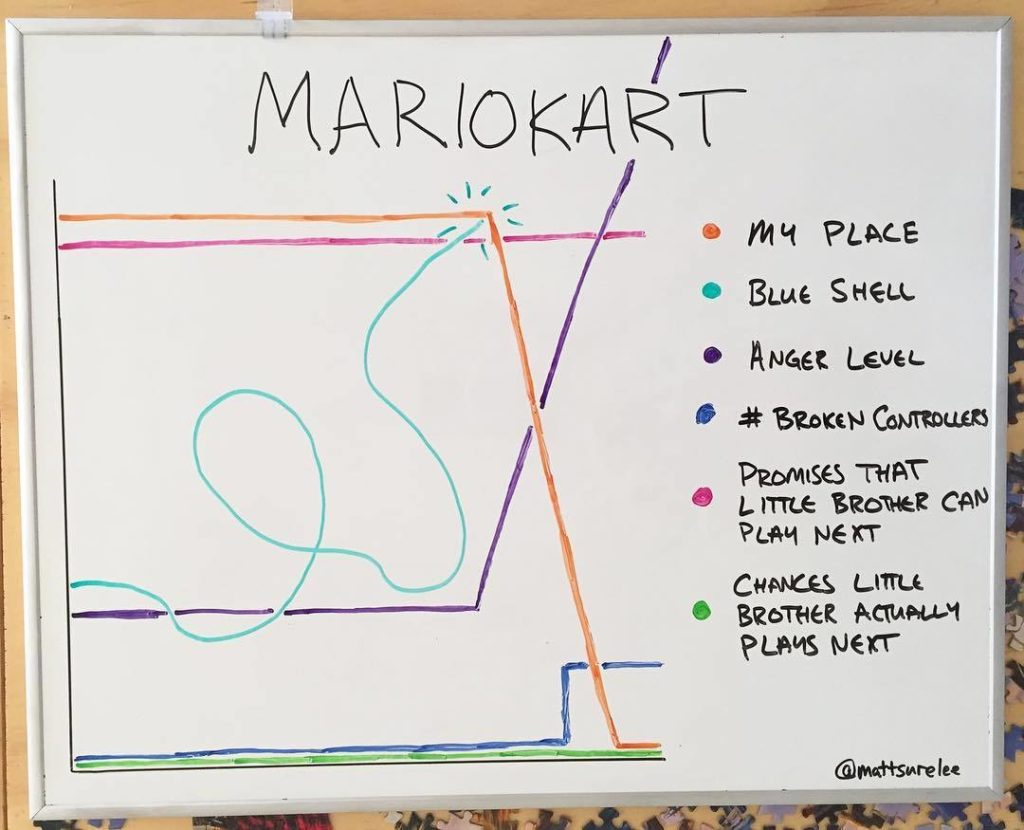 MARIOKART
MY PLACE
BLUE SHELL
ANGER LEVEL
# BROKEN CONTROLLERS
PROMISES THAT
LITTLE BROTHER CAN
PLAY NEXT
CHANCES LITTLE
BROTHER ACTUALLY
PLAYS NEXT
@mattsurelee